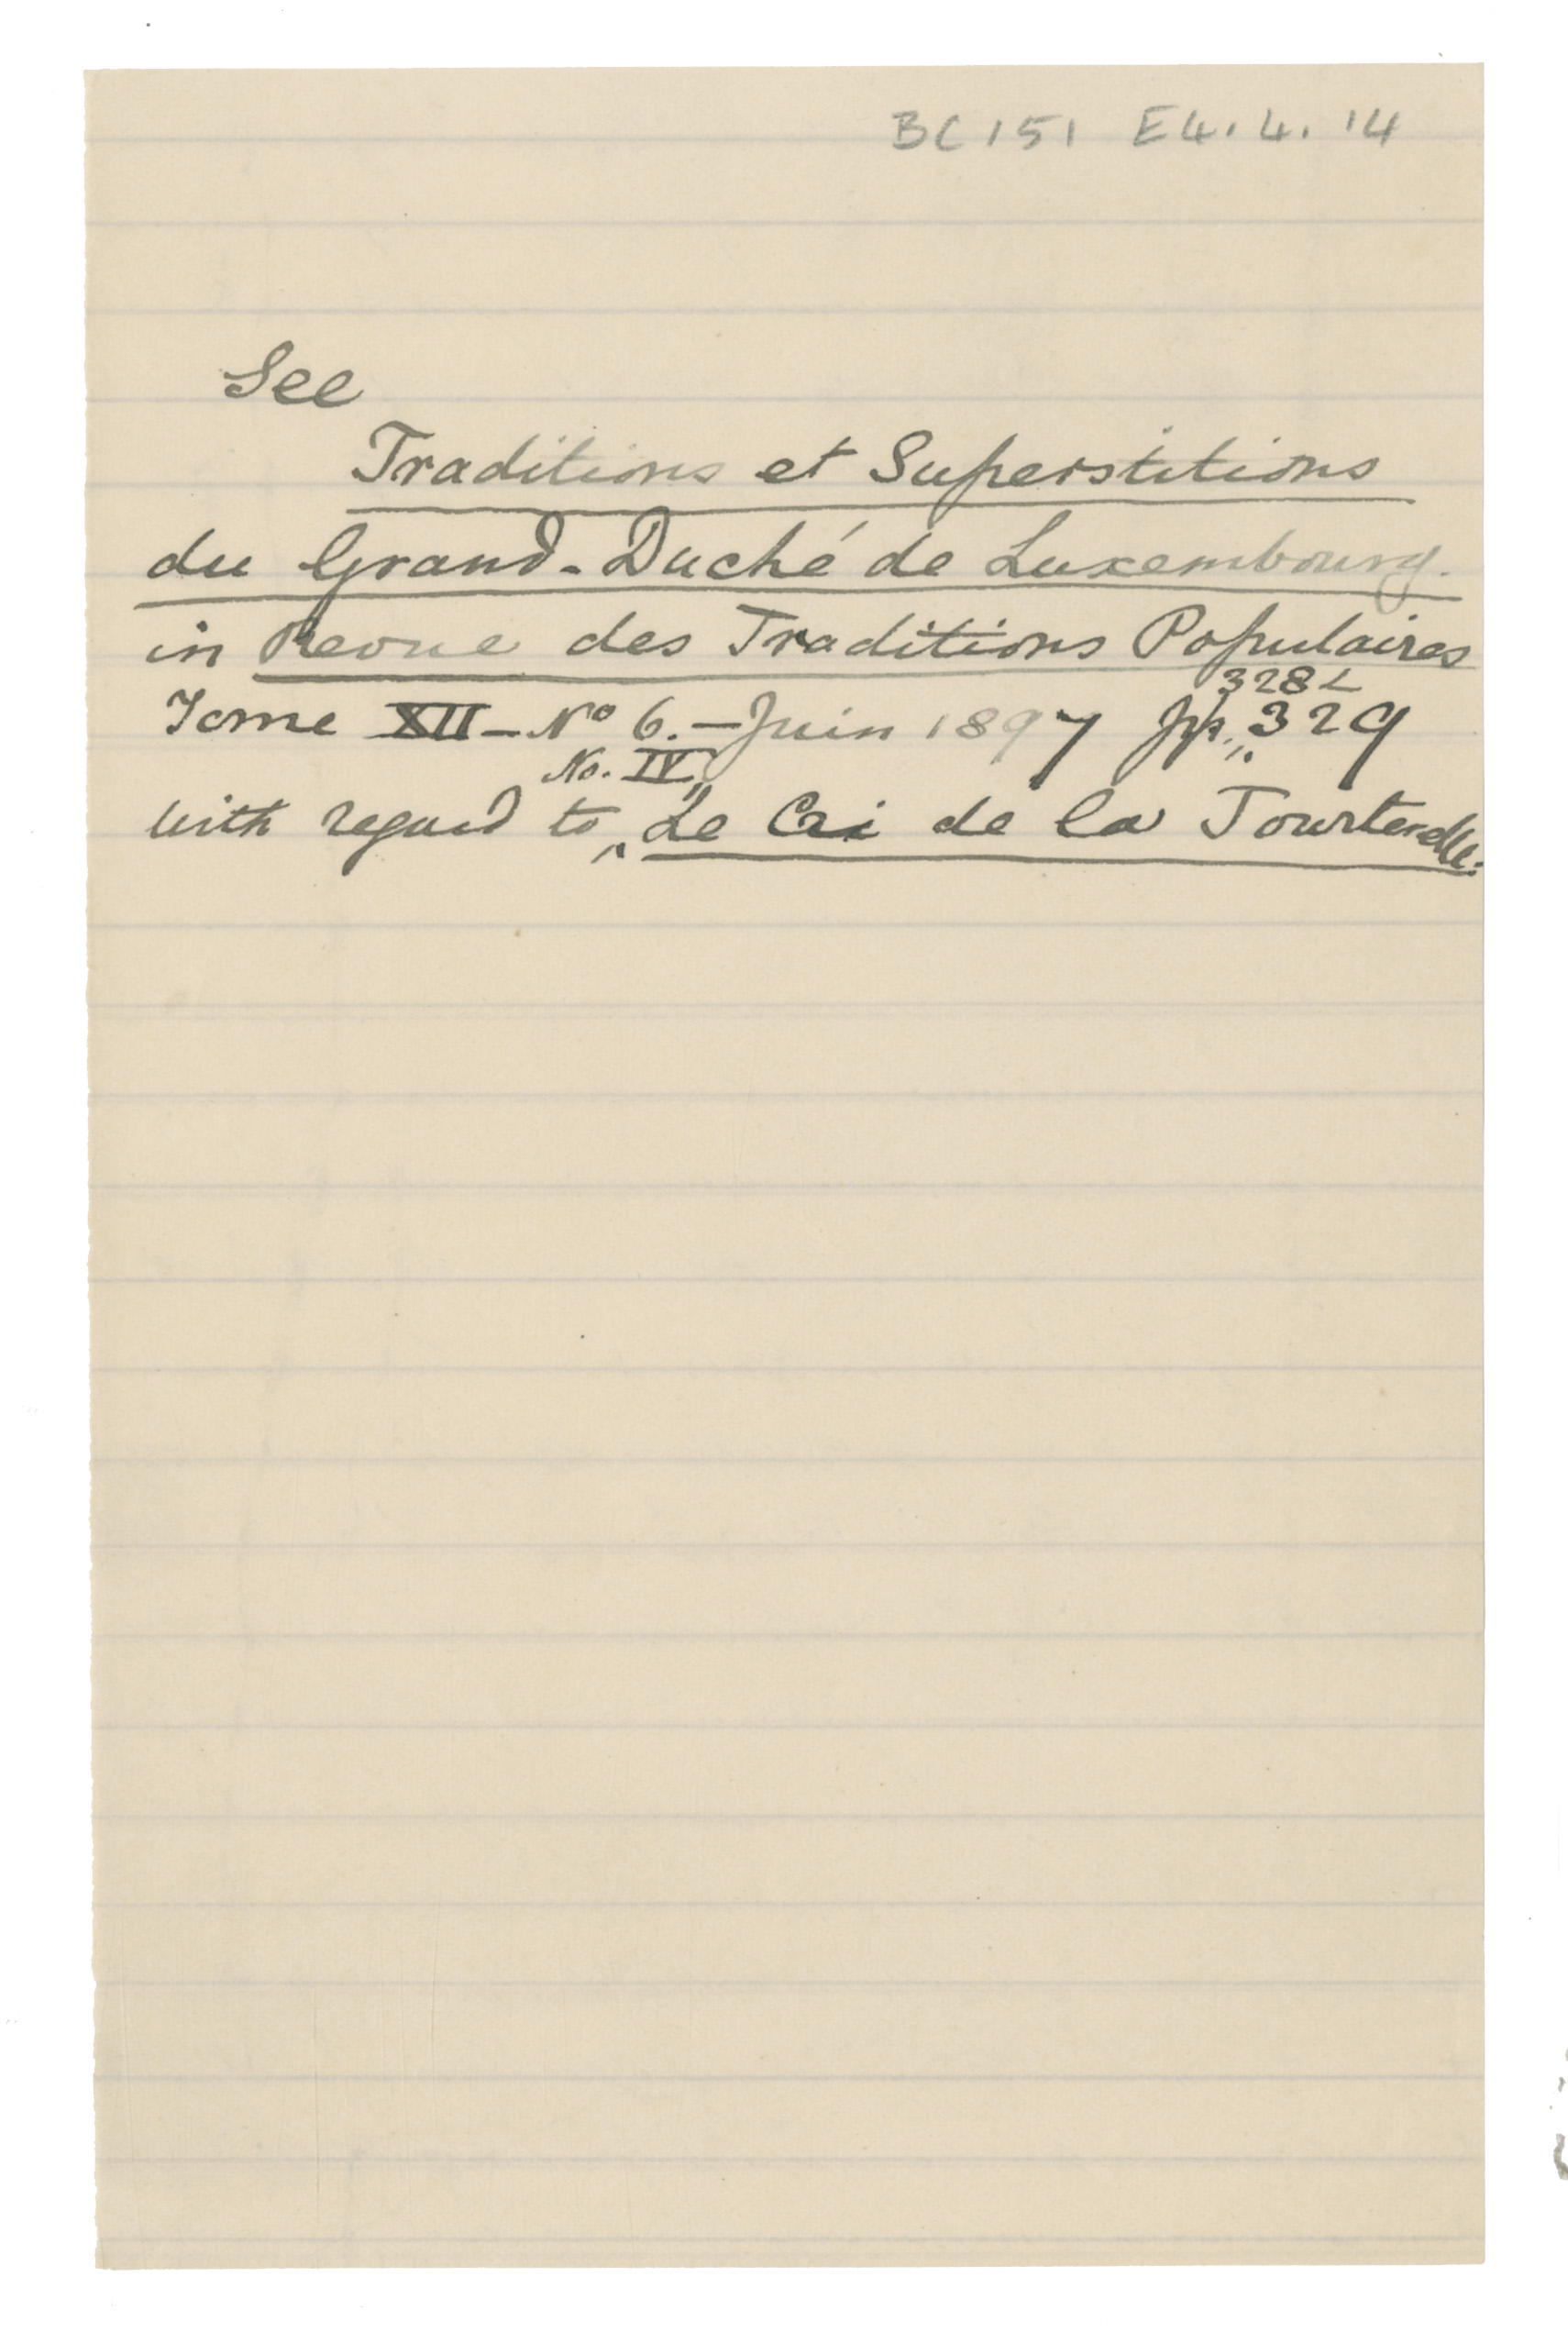 BC 151 E4.4.14
See
Traditions et Superstitions
du Grand-Duché de Luxembourg.
in Revue des Traditions Populaires
328 &
Tome XII – No 6. – Juin 1897 pp. 329
No. IV,
with regard to Le Cri de la Tourterelle.